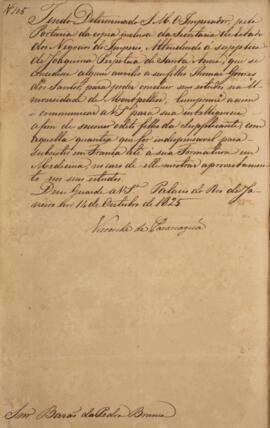 Nº 105
Tendo Determinado S. M. O Imperador, pela
Portaria da copia inclusa da Secretaria de Estado
dos Negocios do Imperio, Attendendo á supplica
de Joaquina Perpetua de Santa Anna, que se
concedesse algum auxilio a seu filho Thomaz Gomes
dos Santos, para poder concluir seus estudos na U
niversidade de Montpellier, cumpre-me assim
o communicar a V Sª para sua intelligencia
a fim de soccorrer o dito filho da Supplicante com
aquella quantia que for indispensavel para
subsistir em França até a sua Formatura em
Medicina no caso de elle mostrar aproveitamen
to nos seus estudos.
Deos Guarde a V Sª Palacio do Rio de Ja
neiro em 14 de Outubro de 1825
Visconde de Paranaguá
Snr Barão da Pedra Branca